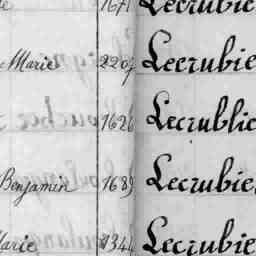 1671 Lecrubie
Marie 2207 Lecrubie
1626 Lecrublie
Benjamin 1689 Lecrubie
Marie 1344 Lecrubie